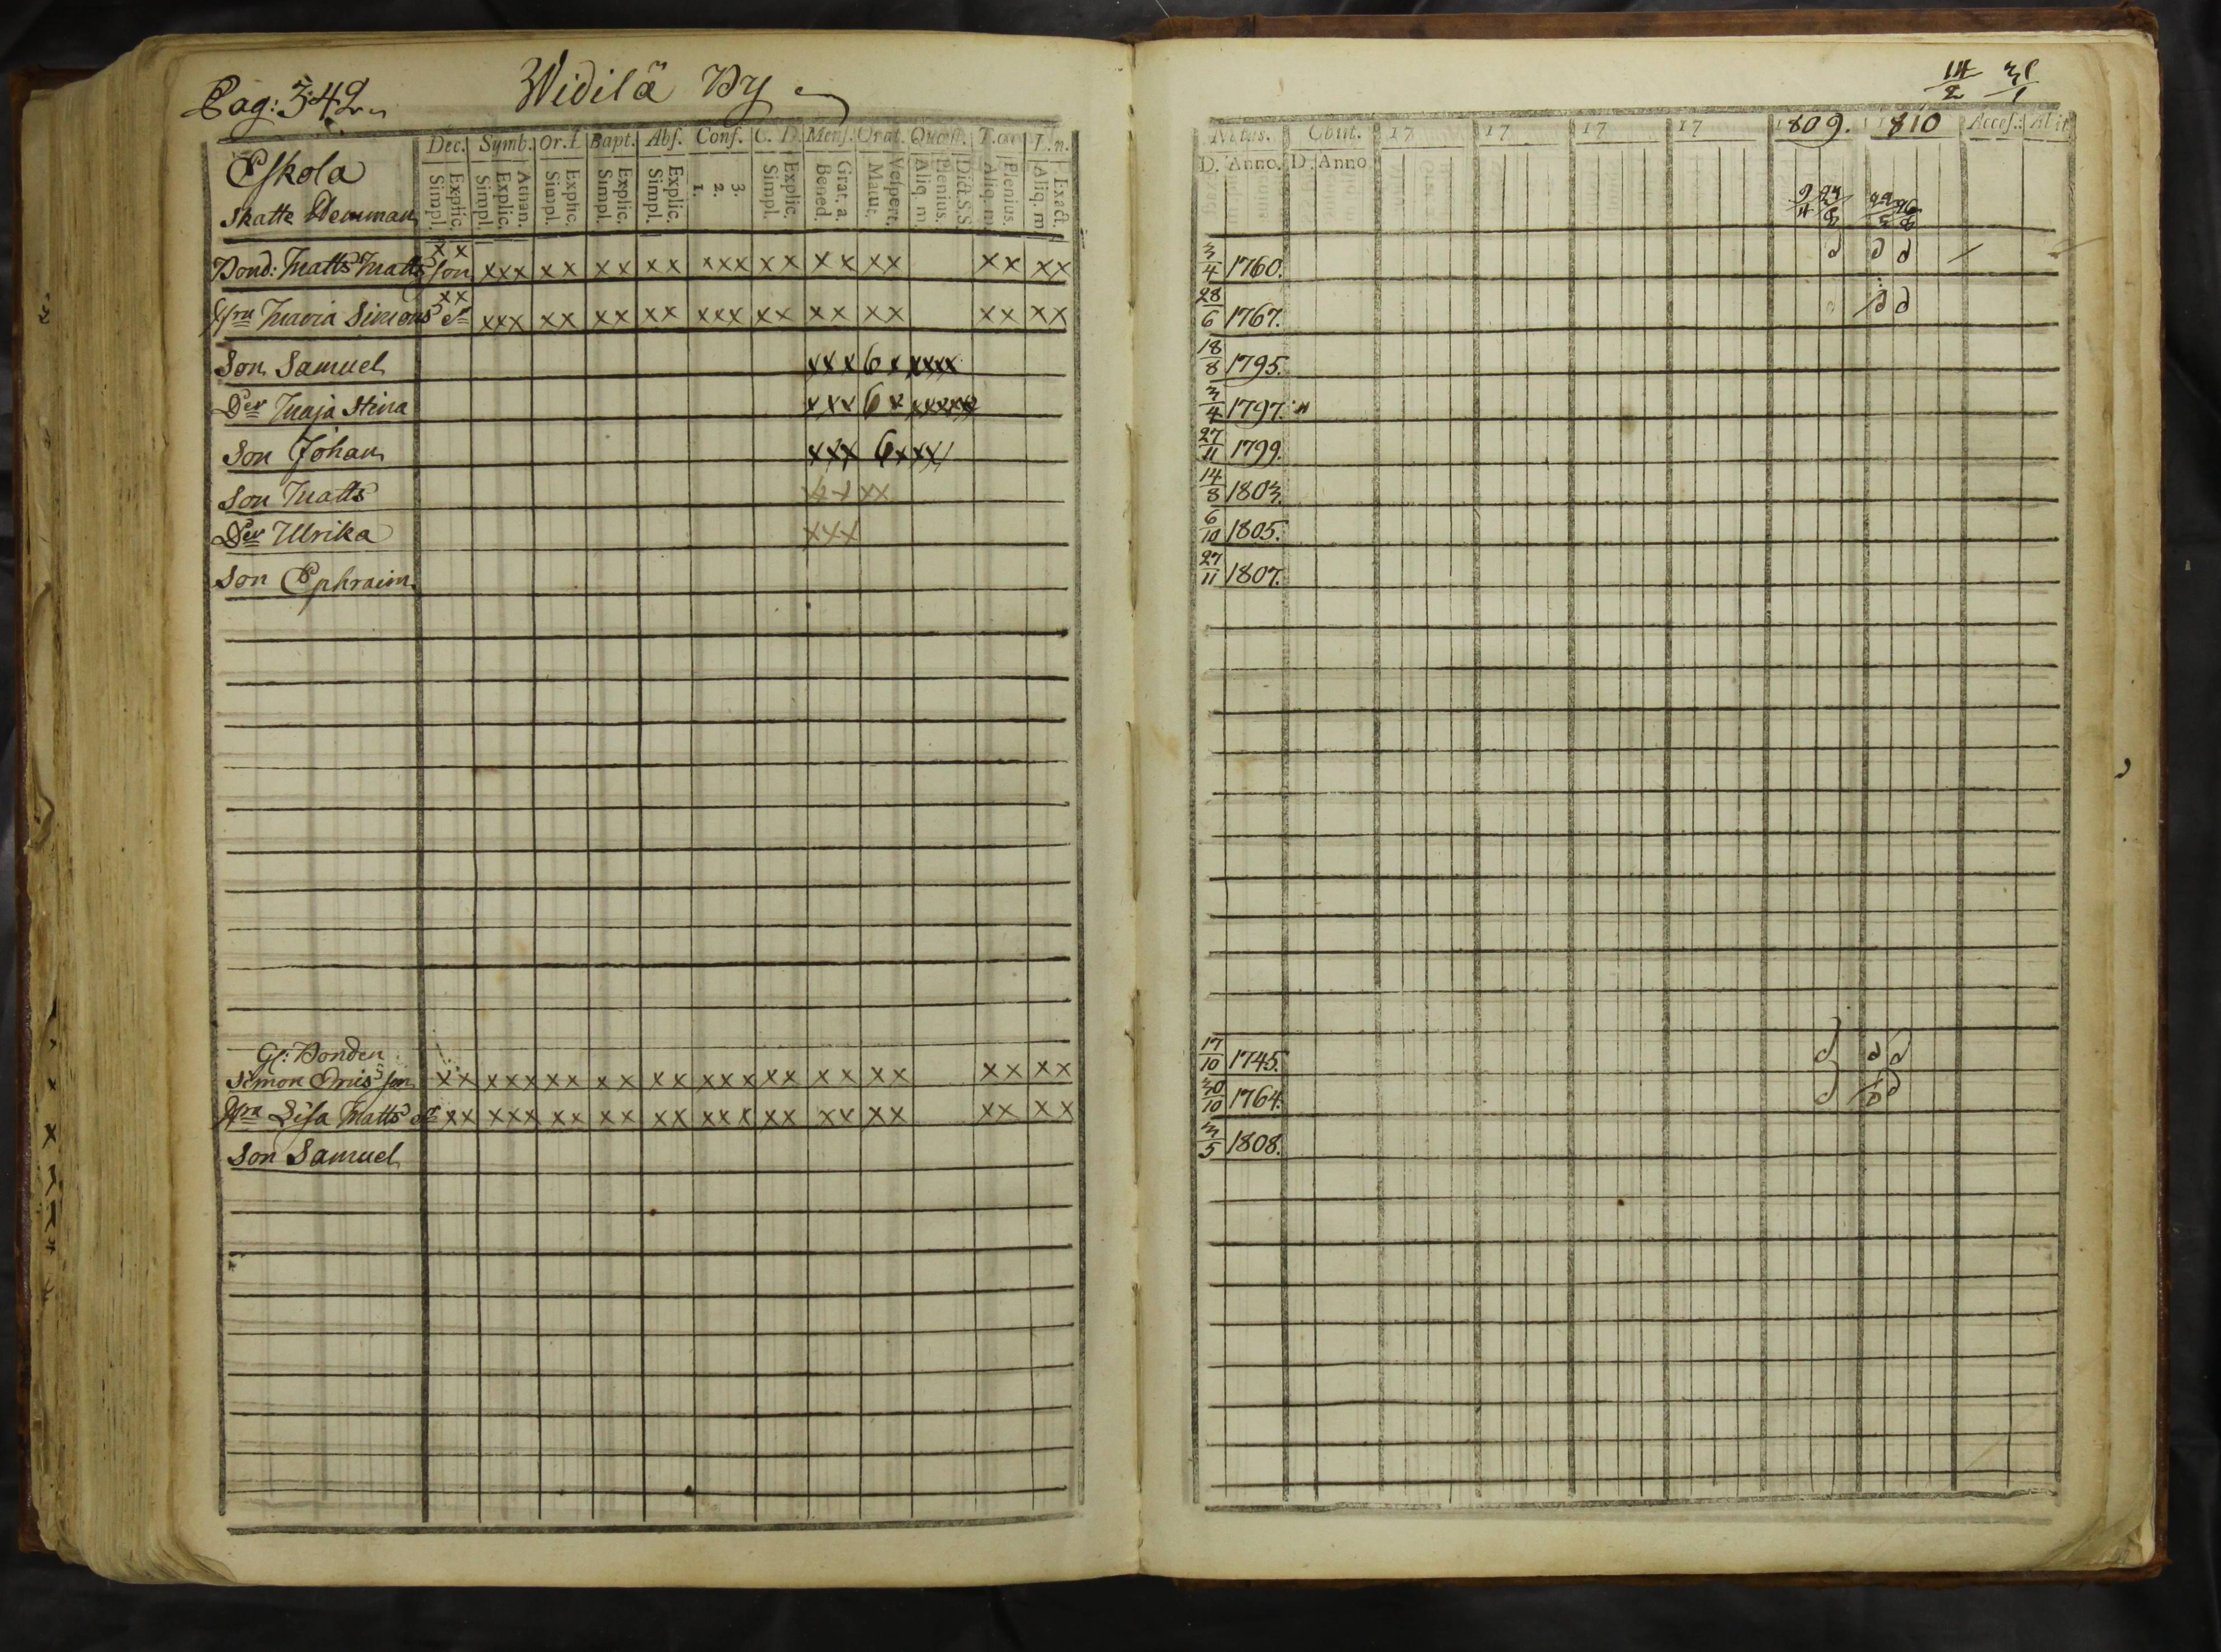 Pag: 342
Widilä By
Dec. Symb. Or. Bapt. Abs. Conf. C. D. Mens. Orat. Quæst. T.
Explic. Simpl. Athan. Explic. Simpl. Explic. Simpl. Explic. Simpl. Explic. Simpl. 3. 2. 1. Explic. Simpl. Grat. a. Bened. Vespert. Matut. Dict. S.S. Plenius. Aliq. m. Plenius. Aliq. m. Exact. Aliq. m.
Eskola
Skatte Hemman
Bond: Matts Matts son xx xxx xx xx xx xxx xx xx xx xx xx
Hstru Maria Simons dr xx xxx xx xx xx xxx xx xx xx xx xx
Son Samuel xxx 6x xxxx
Der Maja Stina xxx 6x
Son Johan xxx 6xxx
Son Matts
Der Ulrika xxx
Son Ephraim
Gl: Bonden
Simon son xx xxx xx xx xx xxx xx xx xx xx xx
Hstru Lisa Matts dr xx xxx xx xx xx xxx xx xx xx xx xx
Son Samuel
14/2 31/1
Natus. Obiit. 17 17 17 17 1809. 1810 Acces. Abit
D. Anno. D. Anno
3/4 1760.
28/6 1767.
18/8 1795.
3/4 1797.
27/11 1799.
14/8 1803.
6/10 1805.
27/11 1807.
17/10 1745.
30/10 1764.
3/5 1808.